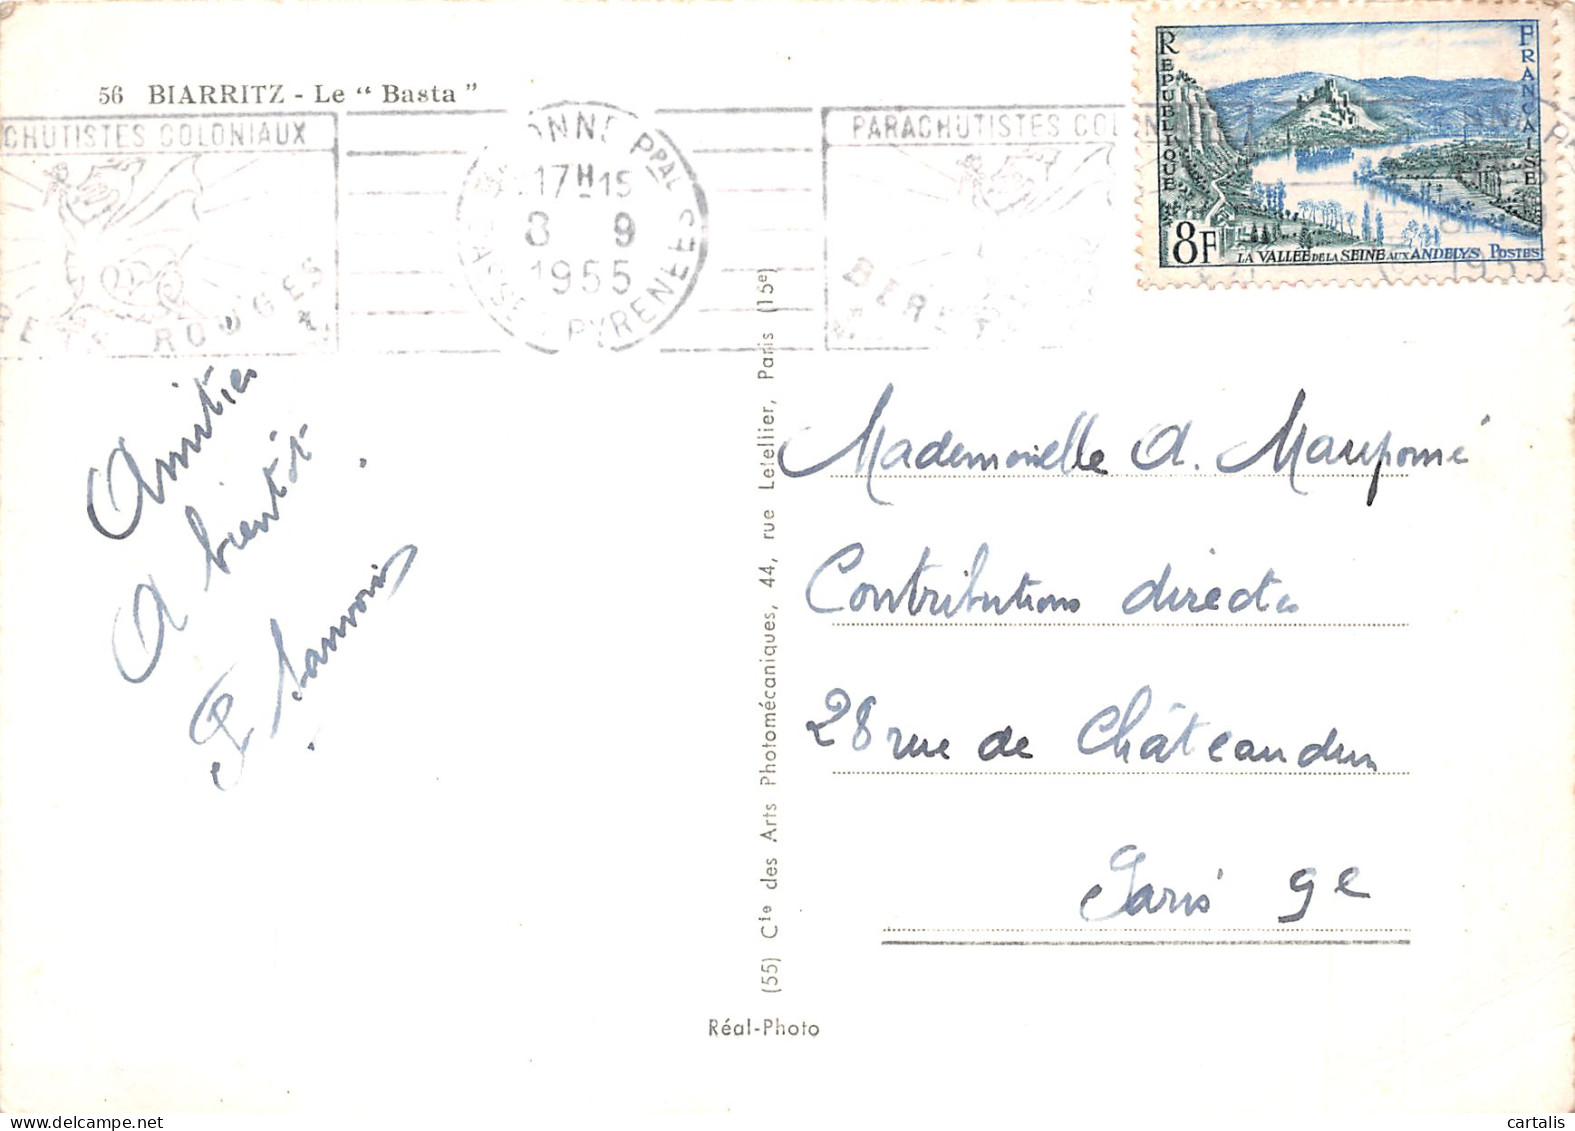 56 BIARRITZ - Le " Basta "
CHUTISTES COLONIAUX
ROUGES
ONNE PPAL
17H15
8 9
1955
BASSES PYRENEES
PARACHUTISTES COL
BER
REPUBLIQUE
FRANCAISE
8F
LA VALLEE DE LA SEINE AUX ANDELYS POSTES
1955
Amitiés
A bientôt
Mademoiselle A. Marpomé
Contributions directes
28 rue de Châteaudun
Paris 9e
(55) Cie des Arts Photomécaniques, 44, rue Letellier, Paris (15e)
Réal-Photo
cartalis
www.delcampe.net